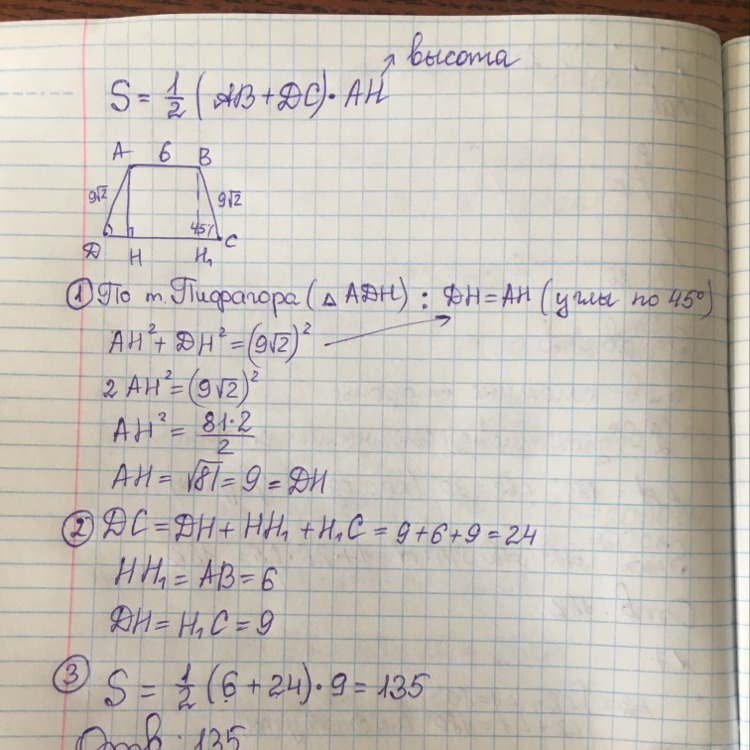 высота
S = 1/2 (AB + DC) · AH
A 6 B
9√2 9√2
45°
D H H₁ C
① По т. Пифагора (△ ADH) : DH = AH (углы по 45°)
AH² + DH² = (9√2)²
2AH² = (9√2)²
AH² = 81·2/2
AH = √81 = 9 = DH
② DC = DH + HH₁ + H₁C = 9 + 6 + 9 = 24
HH₁ = AB = 6
DH = H₁C = 9
③ S = 1/2 (6 + 24) · 9 = 135
Отв : 135